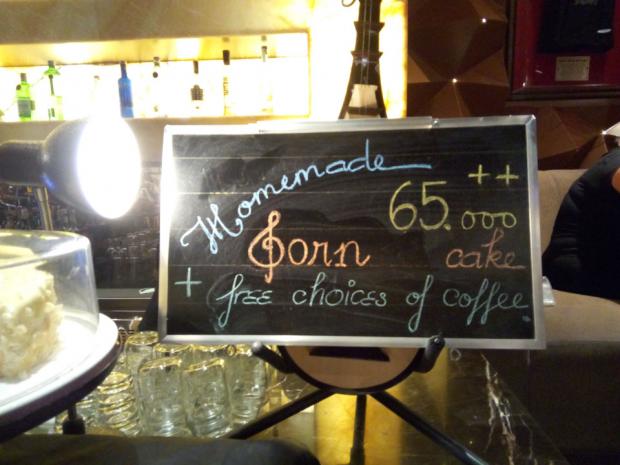 Homemade
65.000 ++
Corn cake
+ free choices of coffee.